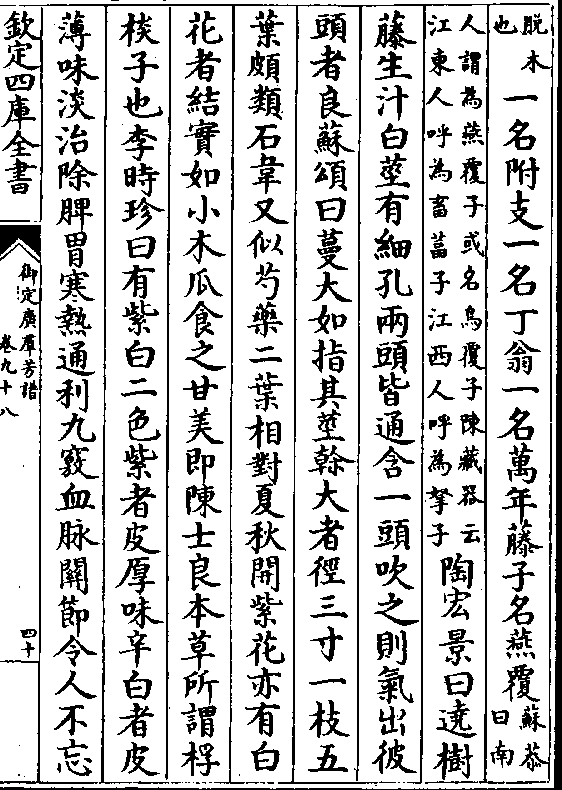 脱木
也
一名附支一名丁翁一名萬年藤子名燕覆
蘇恭
曰南
人謂為燕覆子或名烏覆子陳藏器云
江東人呼為畜葍子江西人呼為拏子
陶宏景曰遶樹
藤生汁白莖有細孔兩頭皆通含一頭吹之則氣出彼
頭者良蘇頌曰蔓大如指其莖榦大者徑三寸一枝五
葉頗類石韋又似芍藥二葉相對夏秋開紫花亦有白
花者結實如小木瓜食之甘美即陳士良本草所謂桴
棪子也李時珍曰有紫白二色紫者皮厚味辛白者皮
薄味淡治除脾胃寒熱通利九竅血脉關節令人不忘
欽定四庫全書
御定廣羣芳譜
卷九十八
四十